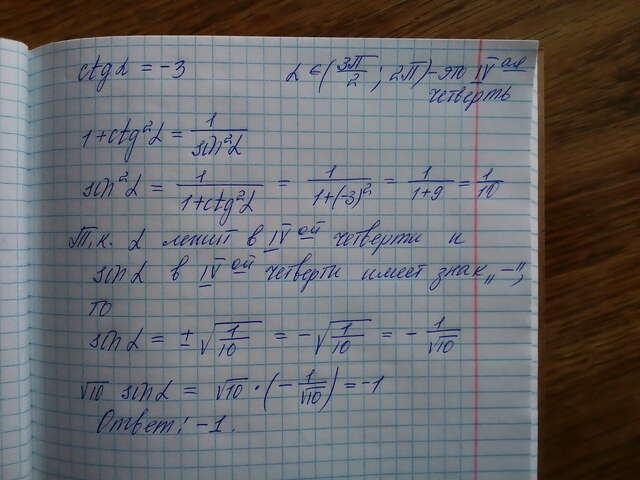 ctg α = -3     α ∈ (3π/2 ; 2π) - это IV ая
четверть
1 + ctg²α = 1/sin²α
sin²α = 1/(1+ctg²α) = 1/(1+(-3)²) = 1/(1+9) = 1/10
Т.к. α лежит в IV ой четверти и
sin α в IV ой четверти имеет знак „-",
то
sin α = ±√(1/10) = -√(1/10) = - 1/√10
√10 sin α = √10 · (- 1/√10) = -1
Ответ: -1.